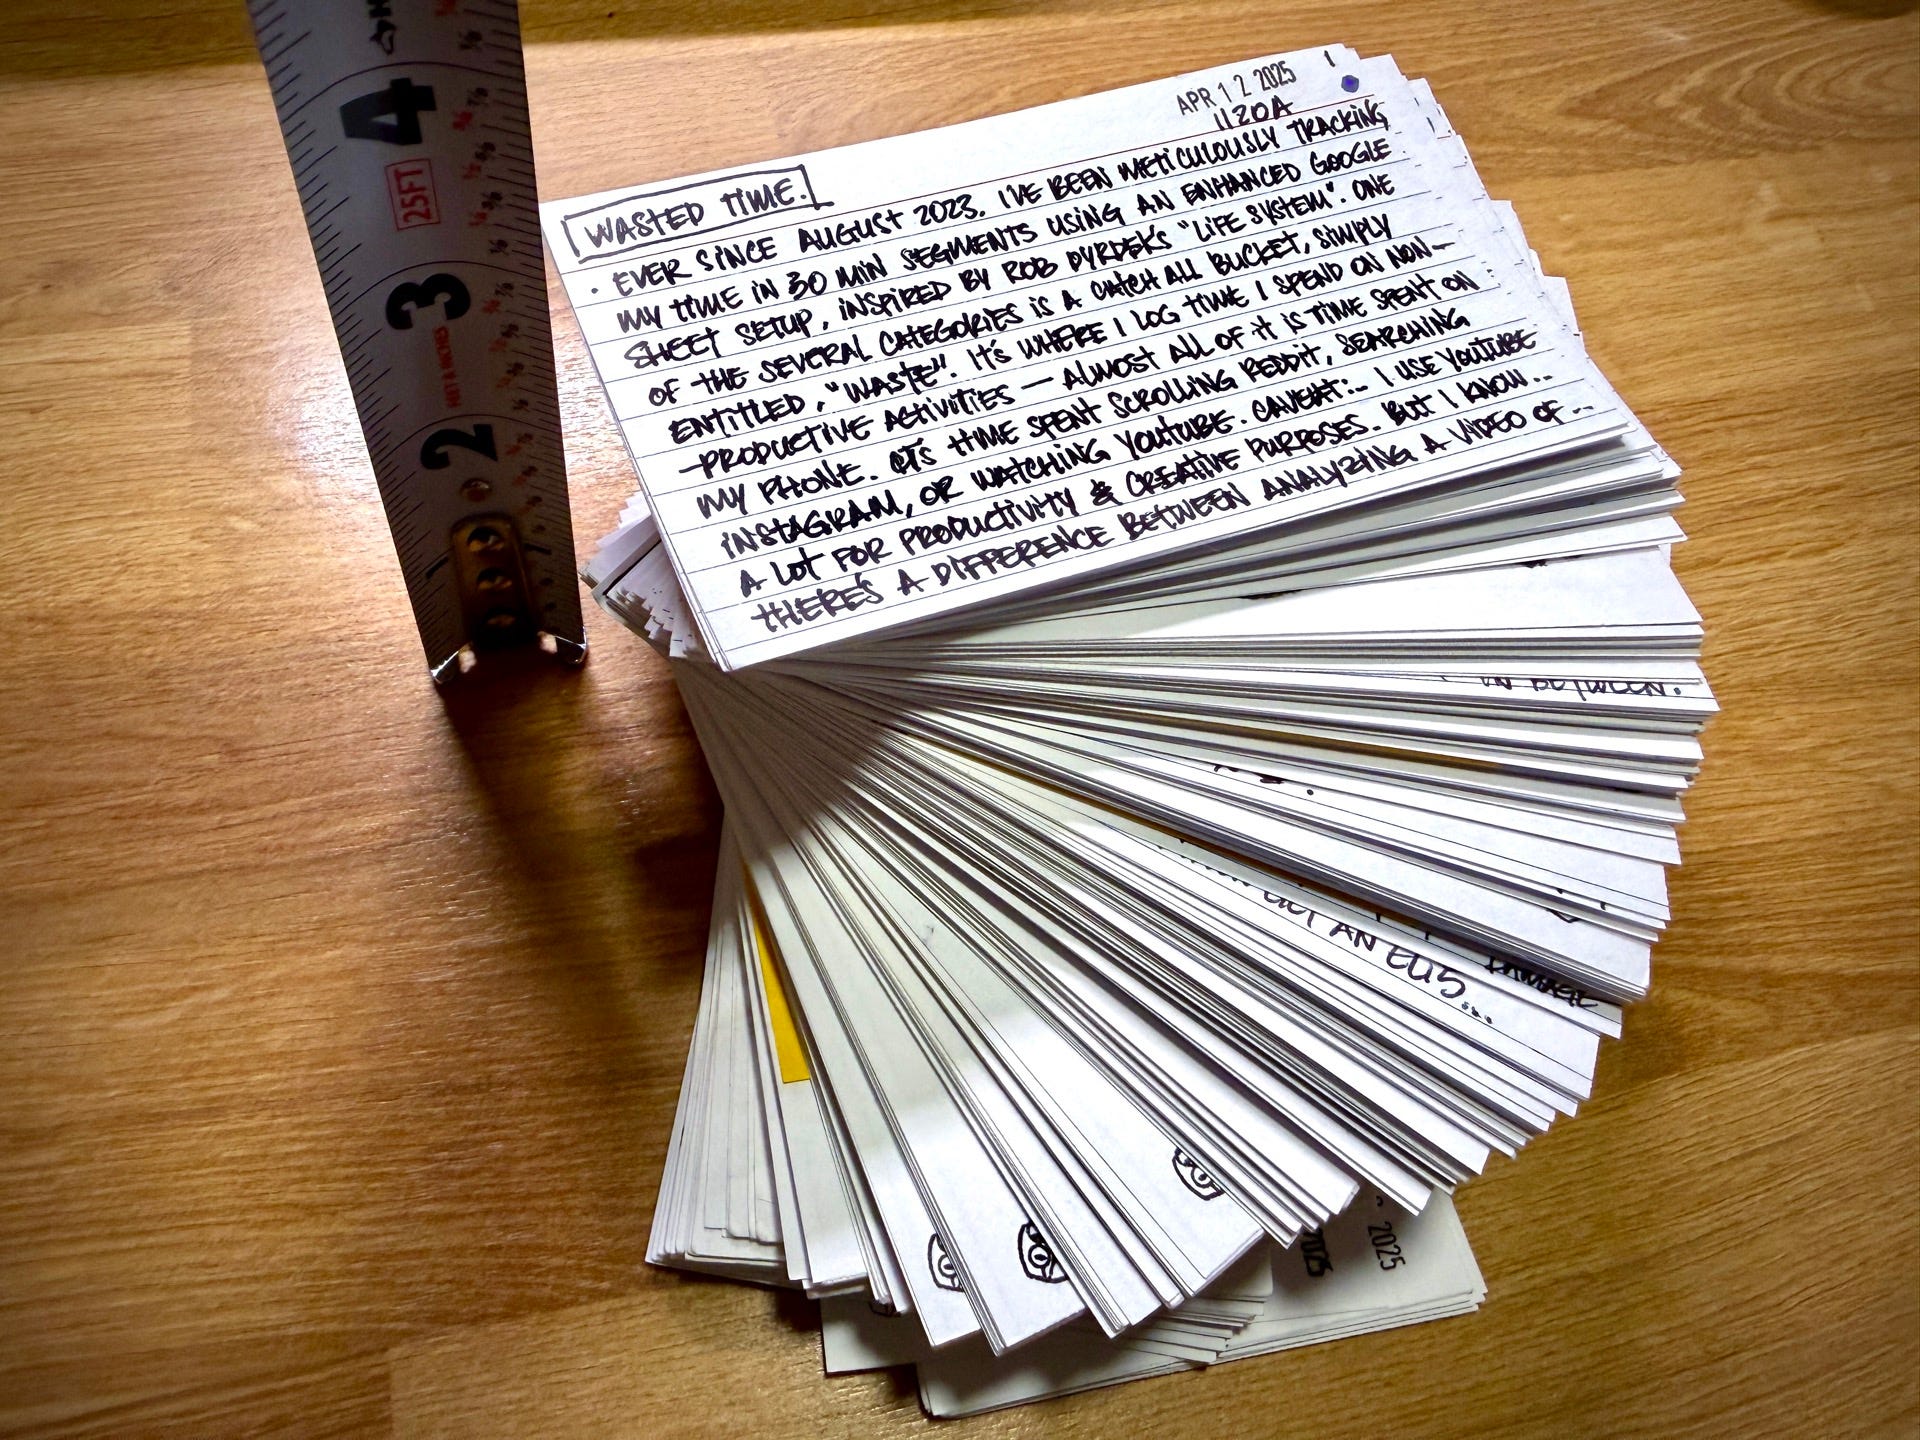 4
25FT
3
2
1
APR 12 2025
1
1120A
WASTED TIME.
· EVER SINCE AUGUST 2023. I'VE BEEN METICULOUSLY TRACKING
MY TIME IN 30 MIN SEGMENTS USING AN ENHANCED GOOGLE
SHEET SETUP, INSPIRED BY ROB DYRDEK'S "LIFE SYSTEM". ONE
OF THE SEVERAL CATEGORIES IS A CATCH ALL BUCKET, SIMPLY
ENTITLED, "WASTE". IT'S WHERE I LOG TIME I SPEND ON NON-
-PRODUCTIVE ACTIVITIES — ALMOST ALL OF IT IS TIME SPENT ON
MY PHONE. IT'S TIME SPENT SCROLLING REDDIT, SEARCHING
INSTAGRAM, OR WATCHING YOUTUBE. CAVEAT:.. I USE YOUTUBE
A LOT FOR PRODUCTIVITY & CREATIVE PURPOSES. BUT I KNOW...
THERE'S A DIFFERENCE BETWEEN ANALYZING A VIDEO OF ...
IN BETWEEN.
GET AN
DAMAGE
2025
2025